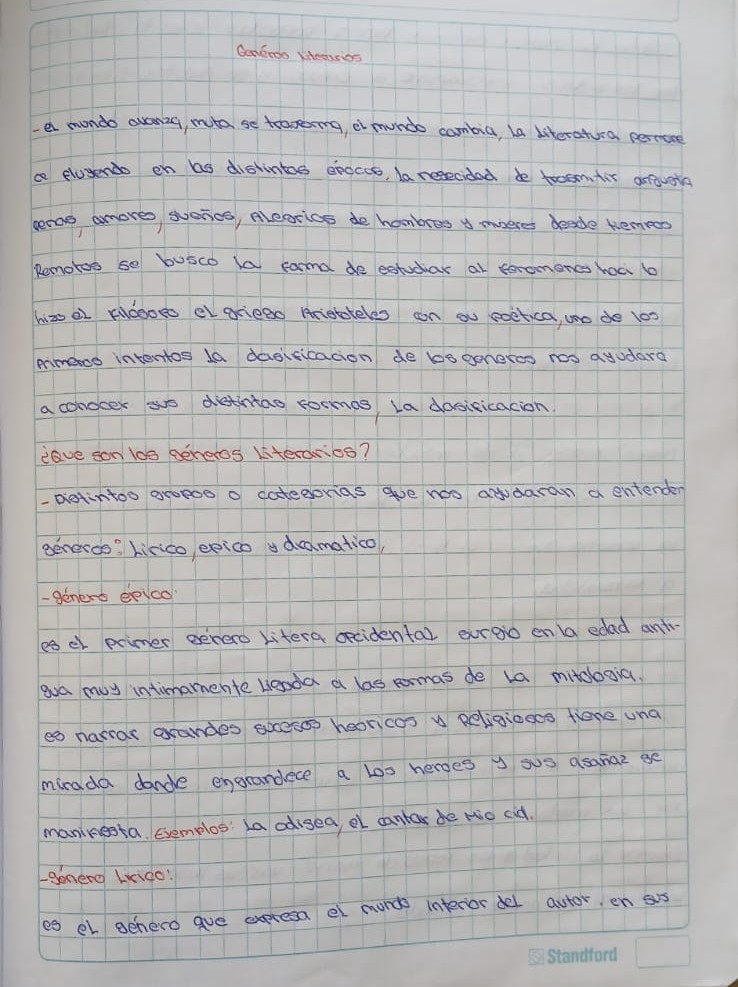 Genéros literarios
- el mundo avanza, muta se trasforma, el mundo cambia, La literatura permane
ce fluyendo en las distintas épocas, la nesecidad de trasmitir angustia
penas, amores, sueños, Alegrias de hombres y mujeres desde tiempos
Remotos se busco la forma de estudiar al fenomenos haci lo
hizo el filósofo el griego Aristoteles con su poética, uno de los
primeros intentos la clasificacion de los generos nos ayudara
a conocer sus distintas formas, La clasificacion.
¿Que son los géneros Literarios?
- Distintos grupos o categorias que nos ayudaran a entender
géneros: Lirico, epico y dramatico,
- género épico:
es el primer género Litera occidental surgio en la edad anti-
gua muy intimamente ligada a las formas de la mitologia.
es narrar grandes sucesos heoricos y Religiosos tiene una
mirada donde engrandece a los heroes y sus asañaz se
manifiesta. Ejemplos: La odisea, el cantar de mio cid.
- género Lirico:
es el género que expresa el mundo interior del autor, en sus
Standford